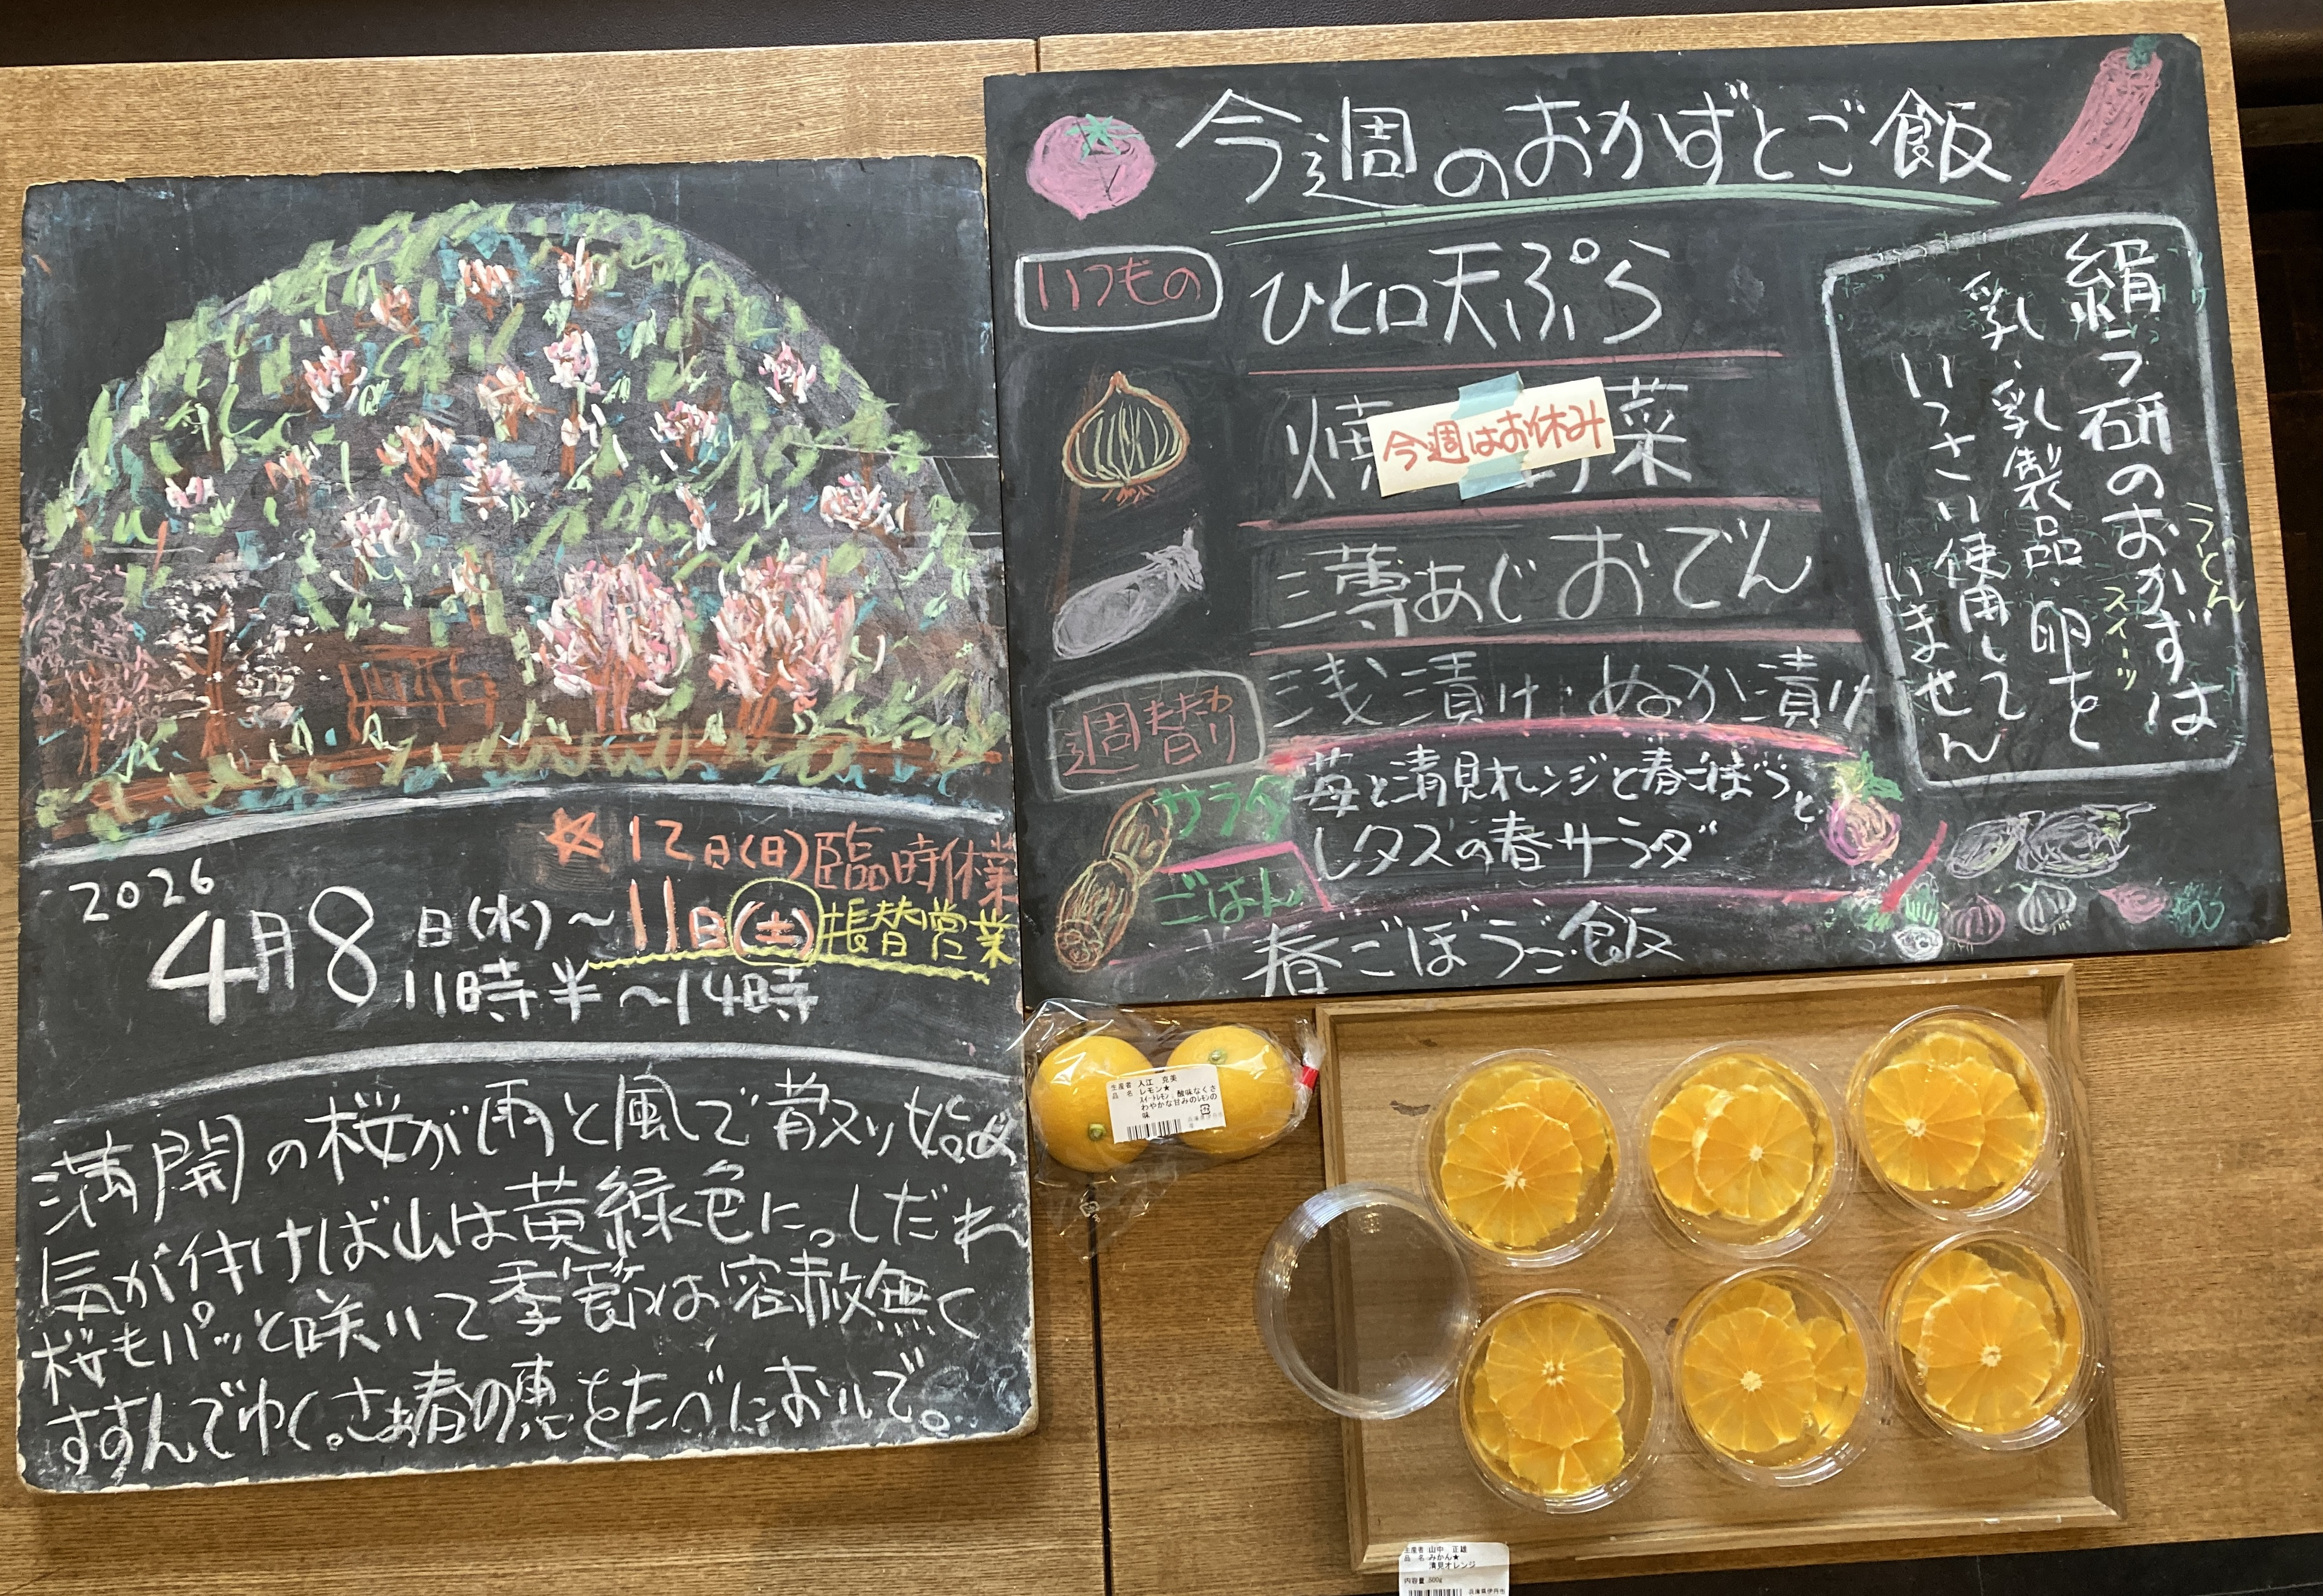 ☆12日(日)臨時休業
2026
4月8日(水)～11日(土)振替営業
11時半～14時
満開の桜が雨と風で散り始め
気が付けば山は黄緑色に。しだれ
桜もパッと咲いて季節は容赦無く
すすんでゆく。さぁ春の恵をたべにおいで。
今週のおかずとご飯
いつもの
ひと口天ぷら
焼 菜
今週はお休み
薄あじおでん
浅漬け・ぬか漬け
週替わり
サラダ
苺と清見オレンジと春ごぼうと
レタスの春サラダ
ごはん
春ごぼうご飯
絹ラ研のおかずは
うどん
スイーツ
乳・乳製品・卵を
いっさい使用して
いません
生産者 入江 克美
品 名 レモン★
ｽｲｰﾄﾚﾓﾝ 酸味なくさ
わやかな甘みのﾚﾓﾝの
味
生産者 山中 正雄
品 名 みかん★
清見オレンジ
内容量 500g
兵庫県伊丹市